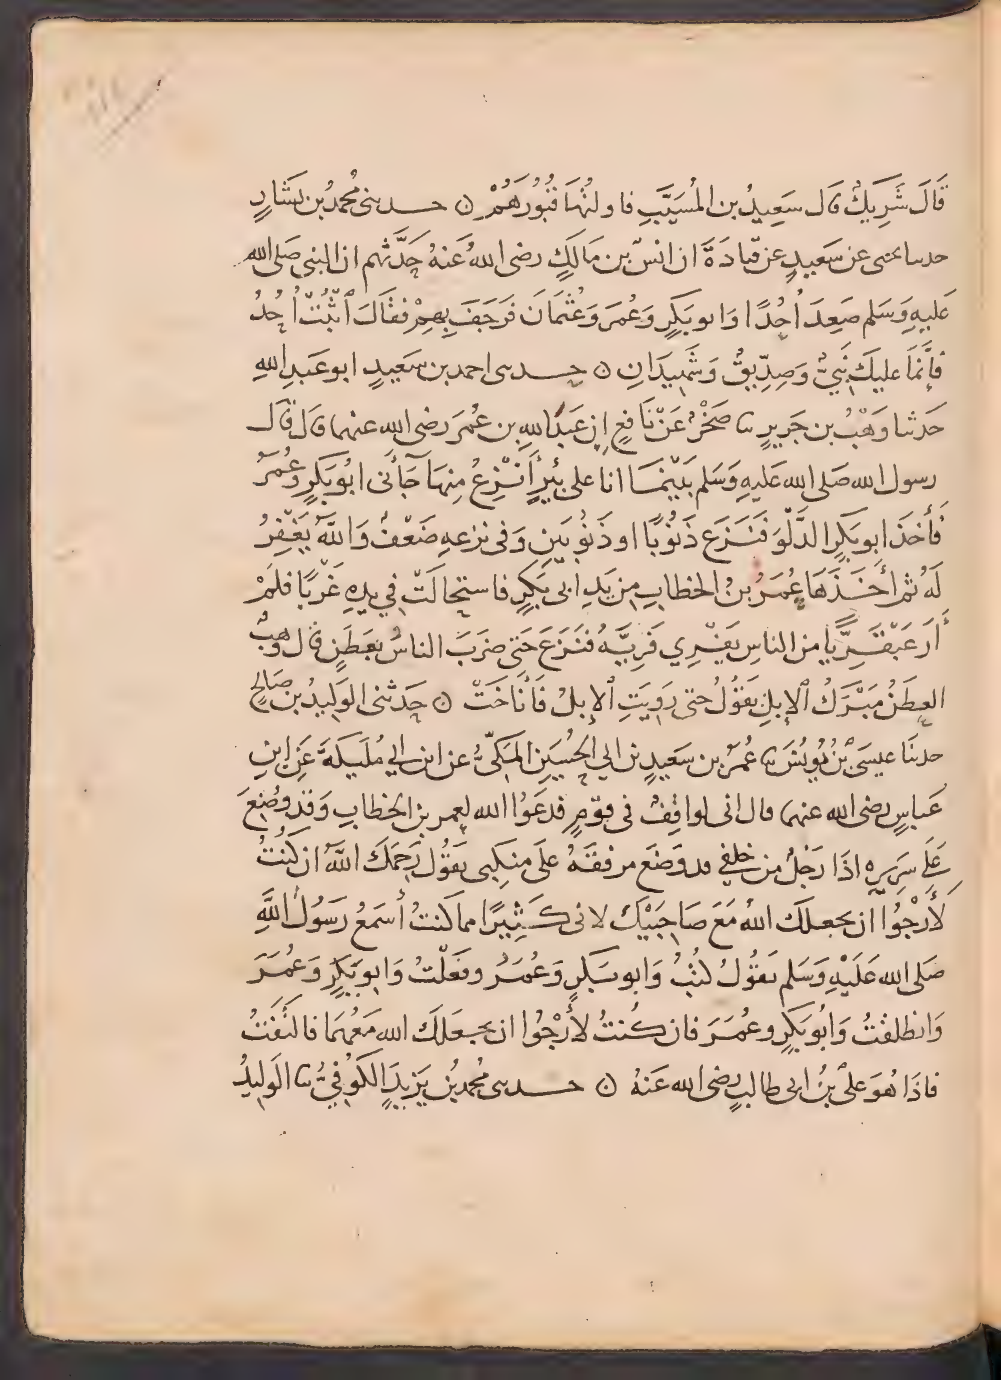 قَالَ شَرِيكٌ قَال سَعِيدُ بن المُسَيَّبِ فاولتُهَا قُبُورَهُمْ ۞ حـدثنى مُحمدُ بن بَشَارٍ
حدثنا يحيى عن سَعيدٍ عن قَتادَةَ ان انسَ بن مَالِكٍ رضى اللهُ عَنهُ حَدَّثهم ان النبى صَلى الله
عَليهِ وَسَلم صَعِدَ أُحُدًا وَابوبَكرٍ وَعُمَرَ وَعُثمَانَ فَرَجَفَ بِهِمْ فقَالَ ٱثْبُتْ أُحُدُ
فَإِنَّمَا عليكَ نَبِيٌّ وَصِدِّيقٌ وَشَهِيدَانِ ۞ حـدثنى احمد بن سَعِيدٍ ابو عَبدِ اللهِ
حَدثنا وَهْبُ بن جَريرٍ نا صَخْرٌ عَنْ نَافِعٍ ان عَبْدَ اللهِ بن عُمَرَ رضى الله عنهما قَال قال
رسول الله صَلى الله عَليهِ وَسَلم بَيْنَمَا انا على بِئرٍ أَنْزِعُ مِنهَا جَآنى ابُوبَكرٍ وعُمَرُ
فَأَخَذَ ابوبَكرٍ الدَّلْوَ فَنَزَعَ ذَنُوبًا او ذَنُوبَينِ وَفى نزعهِ ضَعْفٌ وَاللهُ يَغْفِرُ
لَهُ ثم أَخَذَهَا عُمَرُ بنُ الخطابِ مِن يَدِ ابى بَكرٍ فاستحالَتْ فِي يدِهِ غَرْبًا فلَمْ
أَرَ عَبْقَرِيًّا من الناسِ يَفْرِي فَرِيَّهُ فَنَزَعَ حَتى ضَرَبَ الناسُ بعَطَنٍ قال وَهْبٌ
العطَنُ مَبْرَكُ ٱلإبلِ يَقُولُ حتى رَوِيَتِ ٱلإبلُ فَأَنَاخَتْ ۞ حَدثنى الوَلِيدُ بن صَالحٍ
حدثنَا عيسَى بْنُ يُونُسَ نا عُمَرُ بن سَعِيدِ بن ابي الحُسَينِ المَكىُّ عن ابن ابي مُلَيكةَ عَنِ ابنِ
عَباسٍ رضى الله عنهما قال انى لواقِفٌ فى قومٍ فدعَوُا الله لعمر بن الخطابِ وَقد وُضِعَ
عَلَى سَرِيرِهِ اذَا رَجُلٌ من خلفى قد وَضَع مرفقَهُ علَى منكبى يقُول رَحِمَكَ اللهُ ان كنتُ
لأَرْجُوا ان يجعلَكَ اللهُ مَعَ صَاحِبَيْكَ لانى كَثِيرًا مما كنتُ أسمَعُ رَسُولَ اللهِ
صَلى الله عَلَيْهِ وَسَلم يَقُولُ كُنتُ وَابوبَكرٍ وَعُمَرُ وفعَلْتُ وَابوبَكرٍ وَعُمَرَ
وَانطلقْتُ وَابُوبَكرٍ وعُمَرَ فان كُنتُ لأَرْجُوا ان يجعَلَكَ الله مَعَهُمَا فالتَفَتُّ
فاذَا هُوَ علىُّ بنُ ابى طالبٍ رضى الله عَنهُ ۞ حـدثنى مُحمدُ بنُ يَزِيدَ الكُوفِيُّ نا الوَلِيدُ